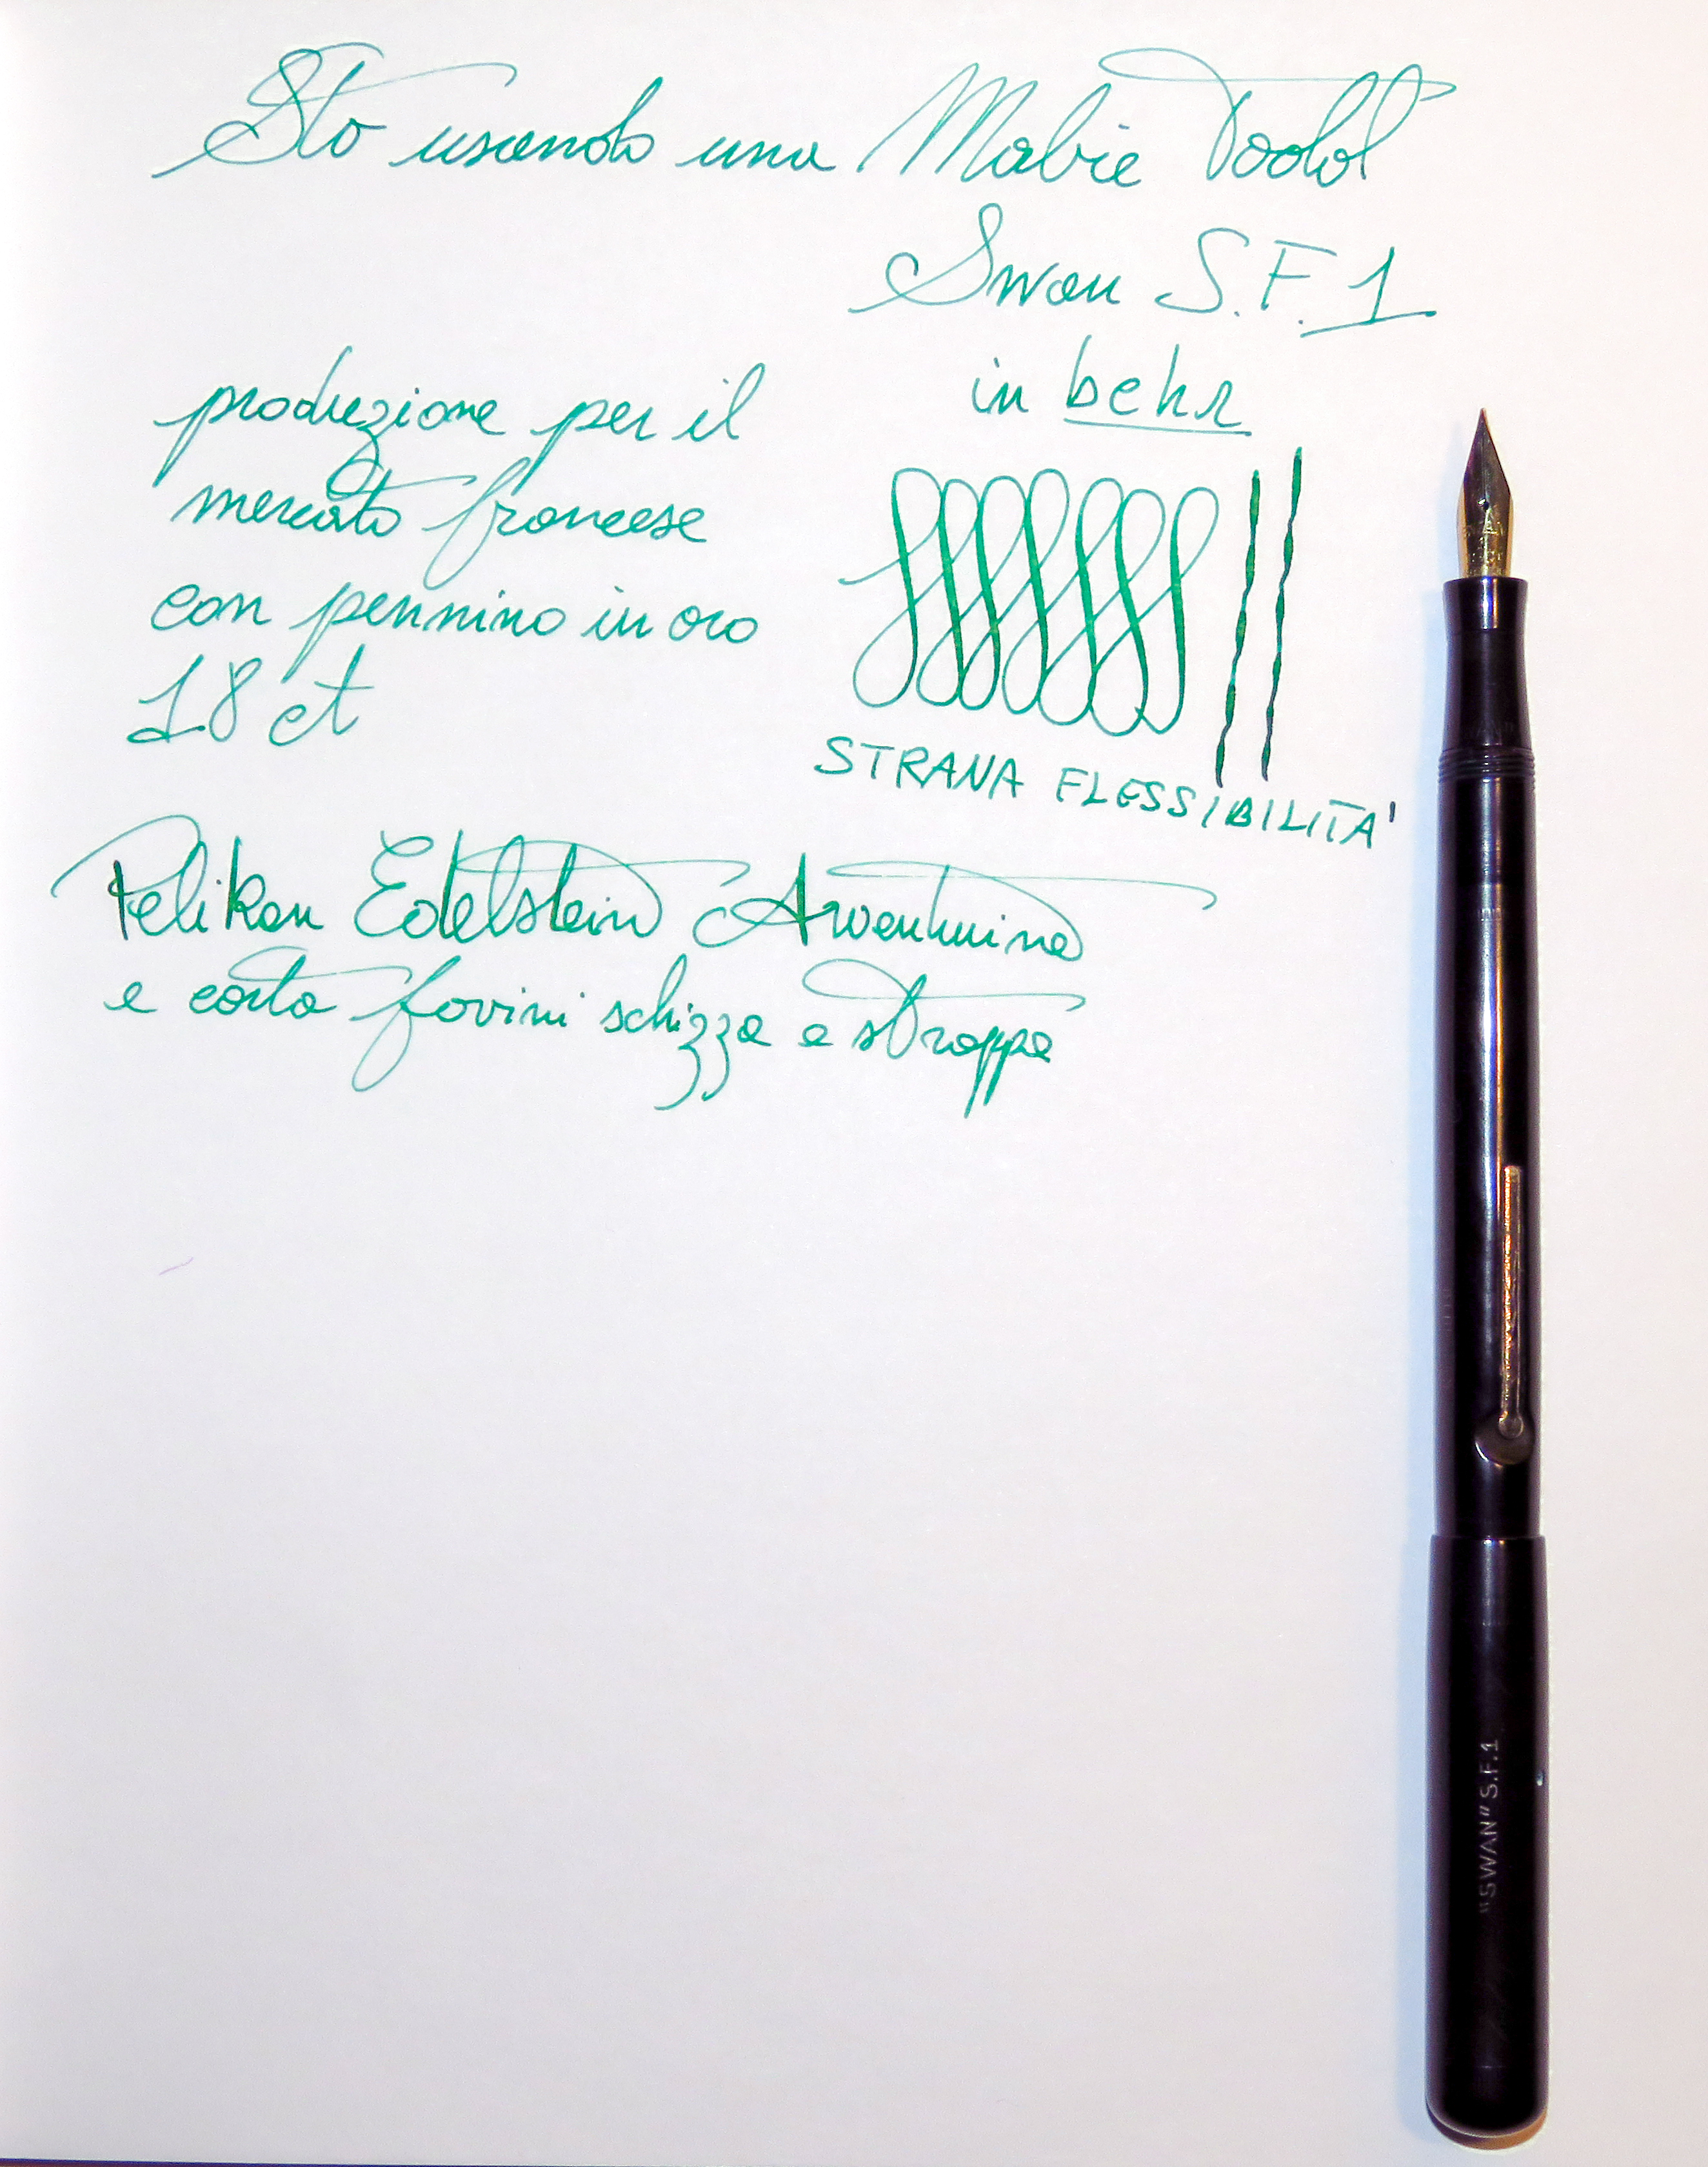 Sto usando una Mabie Todd
Swan S.F.1
in behr
produzione per il
mercato francese
con pennino in oro
18 ct
STRANA FLESSIBILITA'
Pelikan Edelstein Aventurine
e carta favini schizza e strappa
"SWAN" S.F.1